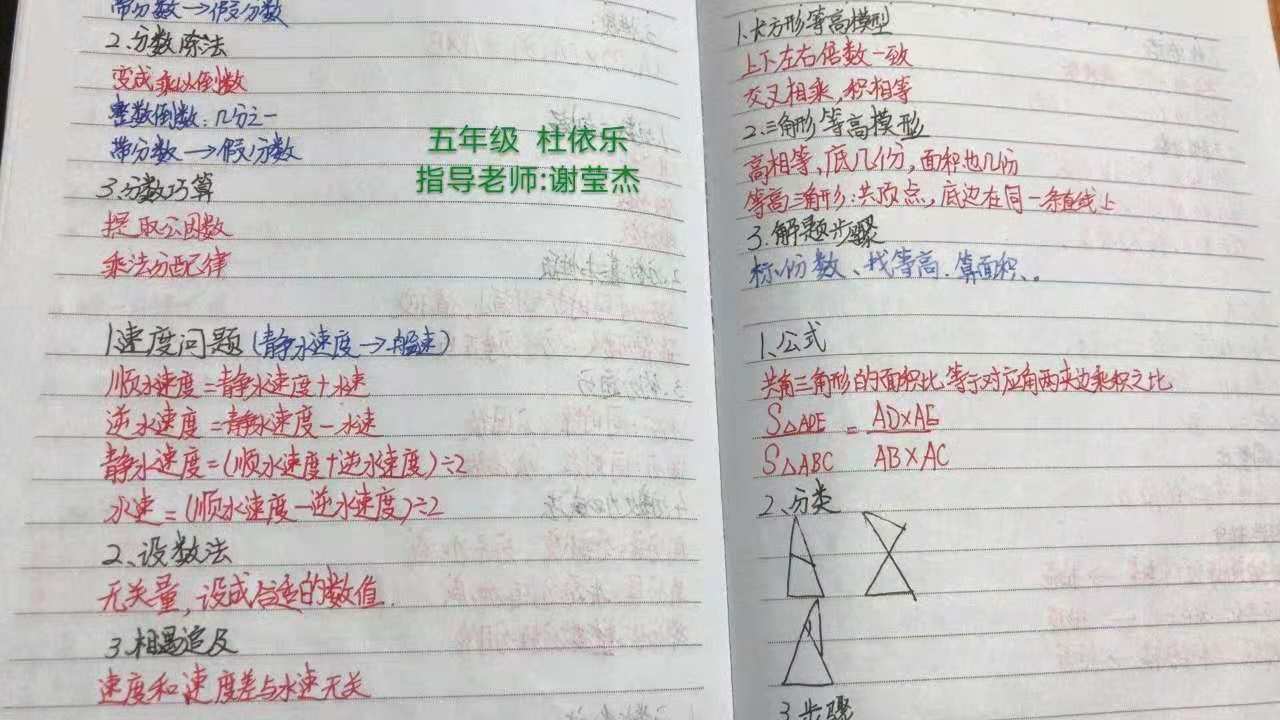 带分数→假分数
2.分数除法
变成乘以倒数
整数倒数:几分之一
带分数→假分数
3.分数巧算
提取公因数
乘法分配律
1.速度问题(静水速度→船速)
顺水速度=静水速度+水速
逆水速度=静水速度-水速
静水速度=(顺水速度+逆水速度)÷2
水速=(顺水速度-逆水速度)÷2
2、设数法
无关量,设成合适的数值.
3.相遇追及
速度和速度差与水速无关
五年级 杜依乐
指导老师:谢莹杰
1.长方形等高模型
上下左右倍数一致
交叉相乘,积相等
2.三角形等高模形
高相等,底几份,面积也几份
等高三角形:共顶点,底边在同一条直线上
3.解题步骤
标份数、找等高.算面积、。
1、公式
共角三角形的面积比等于对应角两夹边乘积之比
S△ADE = AD×AE
S△ABC AB×AC
2、分类
3.步骤